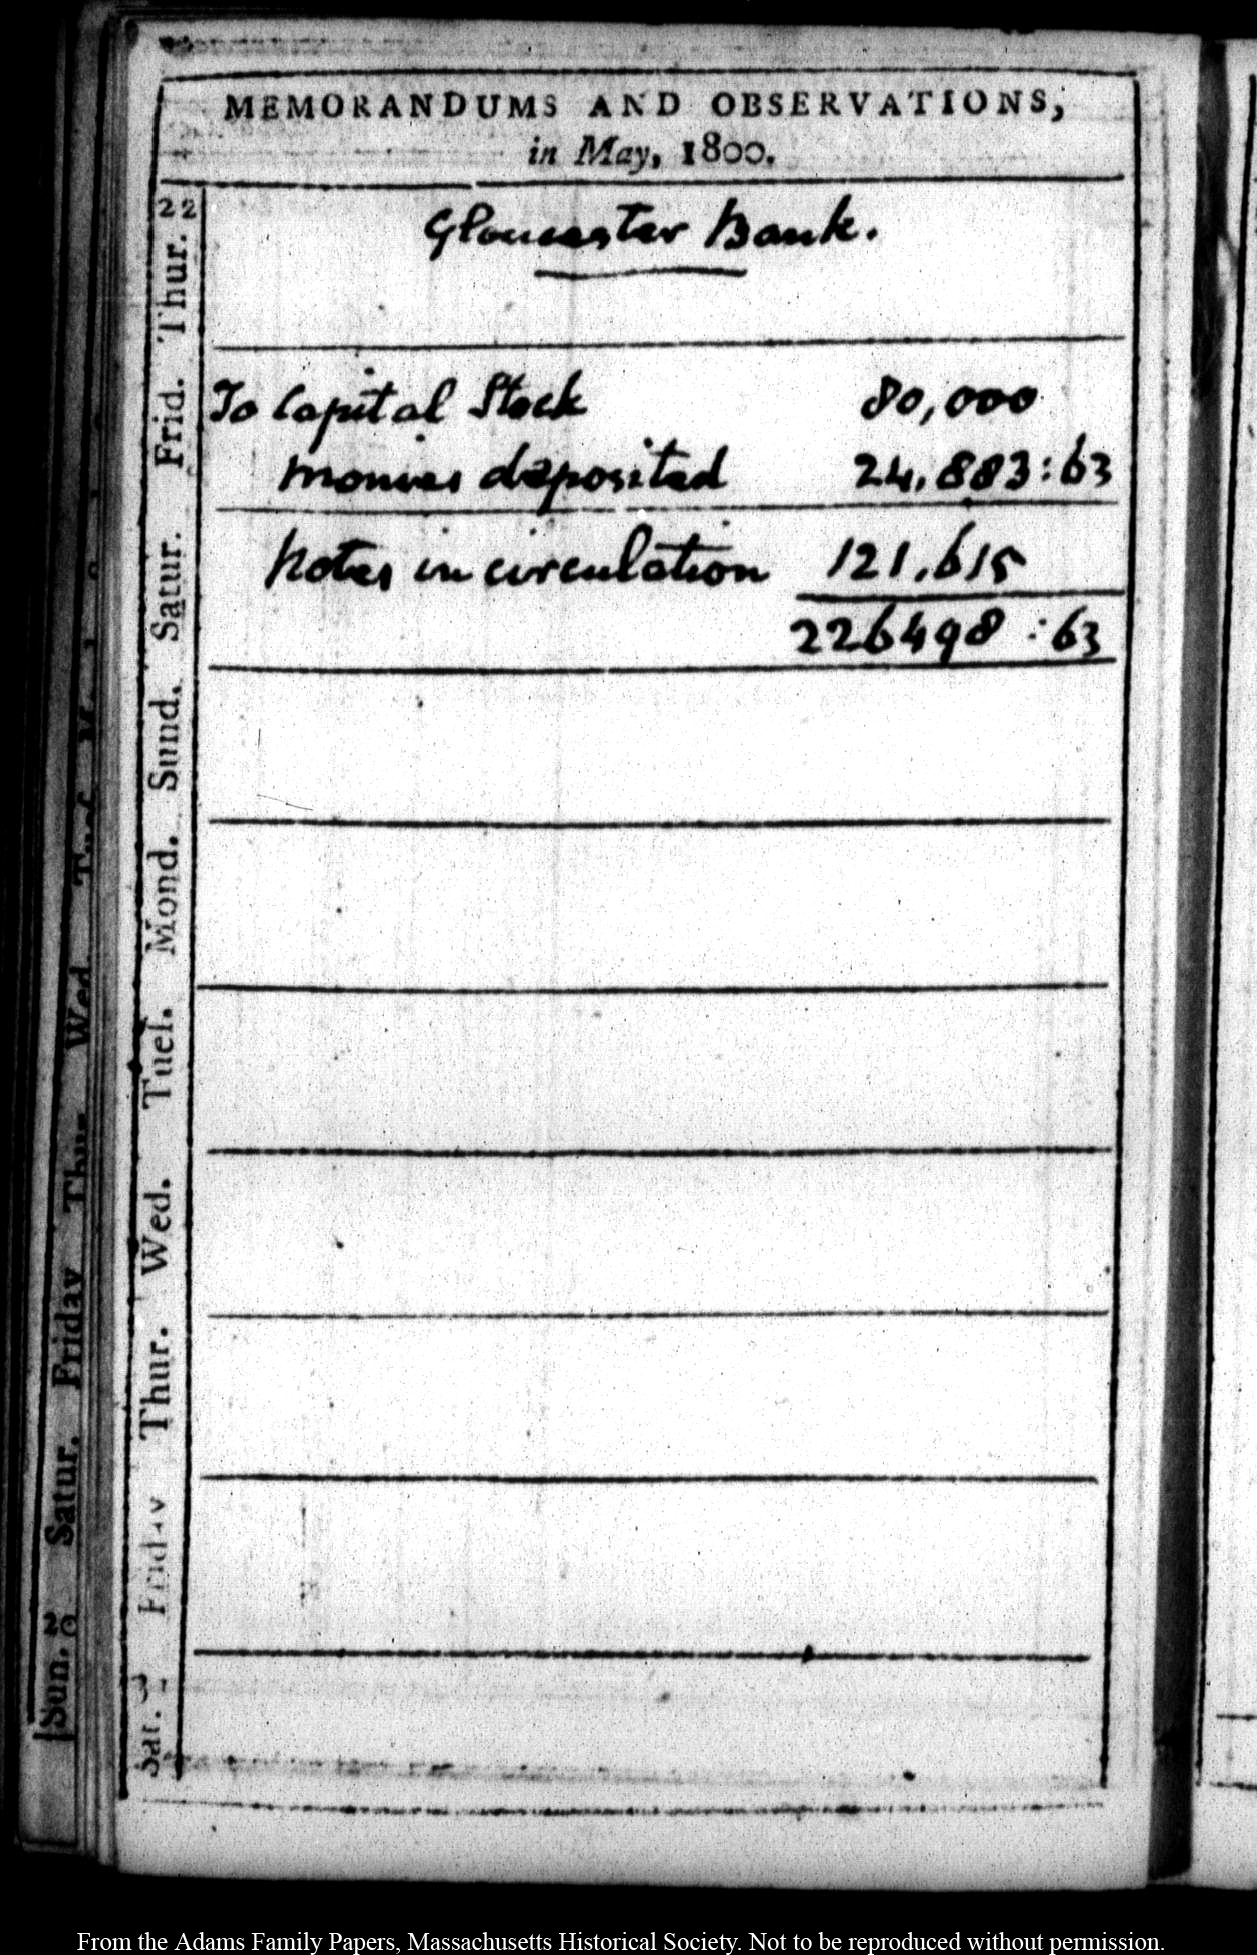 MEMORANDUMS AND OBSERVATIONS,
in May, 1800.
22
Thur.
Gloucester Bank.
Frid.
To Capital Stock 80,000
monies deposited 24,883:63
Satur.
Notes in circulation 121,615
226498:63
Sund.
Mond.
Tues.
Wed.
Thur.
Friday
Sat. 31
Wed
Thur
Friday
Satur.
Sun.
From the Adams Family Papers, Massachusetts Historical Society. Not to be reproduced without permission.